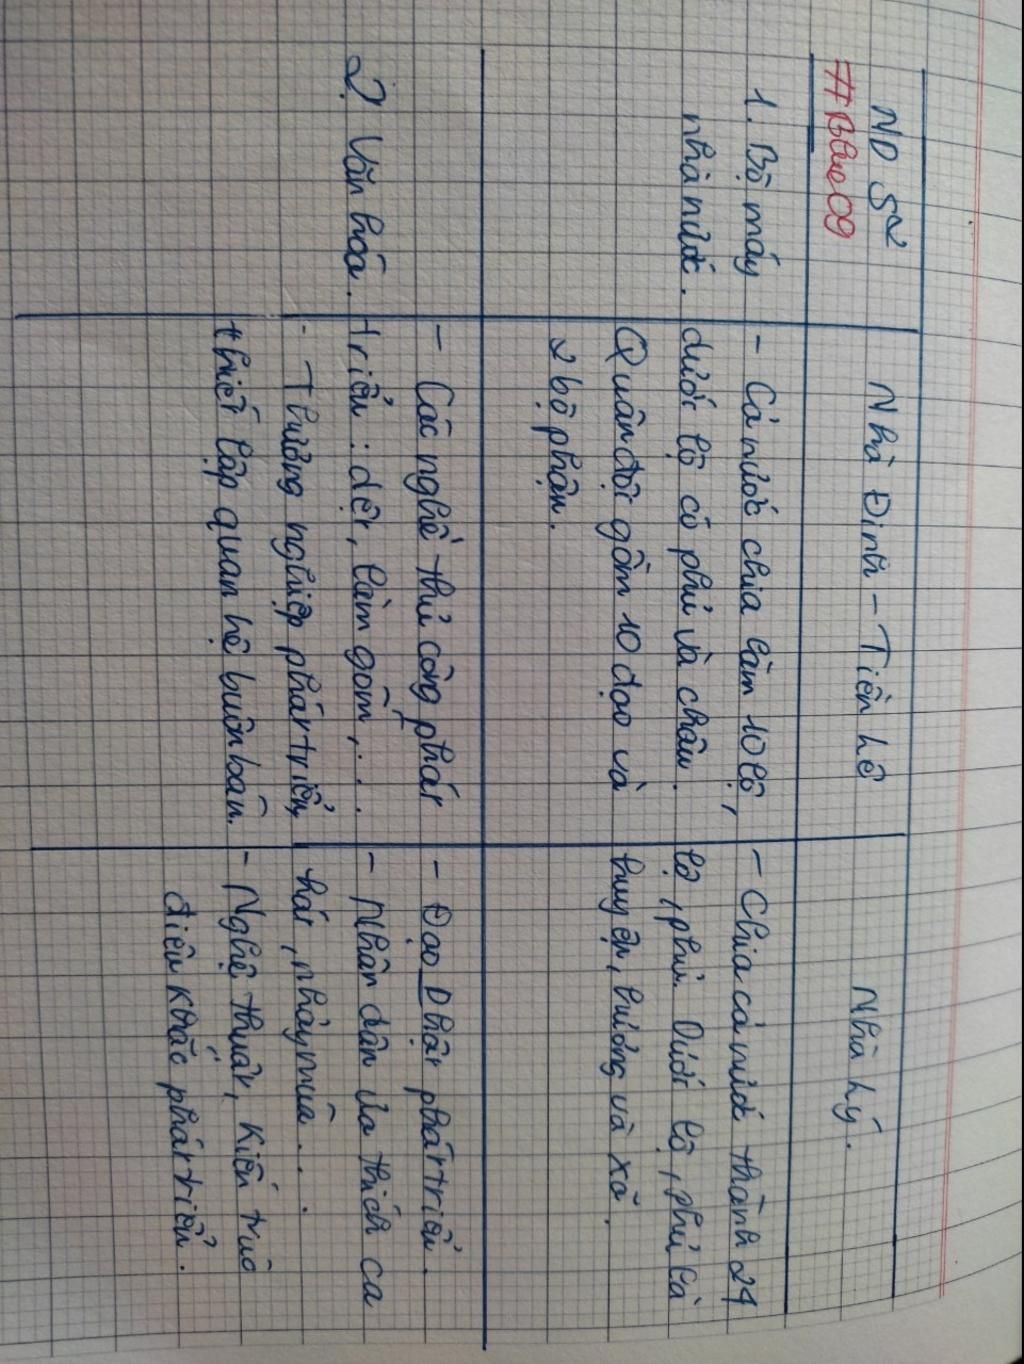 ND S2
#Blue09
Nhà Đinh - Tiền Lê
Nhà Lý.
1. Bộ máy
nhà nước.
- Cả nước chia làm 10 lộ,
dưới lộ có phủ và châu.
Quân đội gồm 10 đạo và
2 bộ phận.
- Chia cả nước thành 24
lộ, phủ. Dưới lộ, phủ là
huyện, hương và xã.
2. Văn hóa.
- Các nghề thủ công phát
triển: dệt, làm gốm,...
- Thương nghiệp phát triển,
thiết lập quan hệ buôn bán.
- Đạo Phật phát triển.
- Nhân dân ưa thích ca
hát, nhảy múa...
- Nghệ thuật, kiến trúc
điêu khắc phát triển.